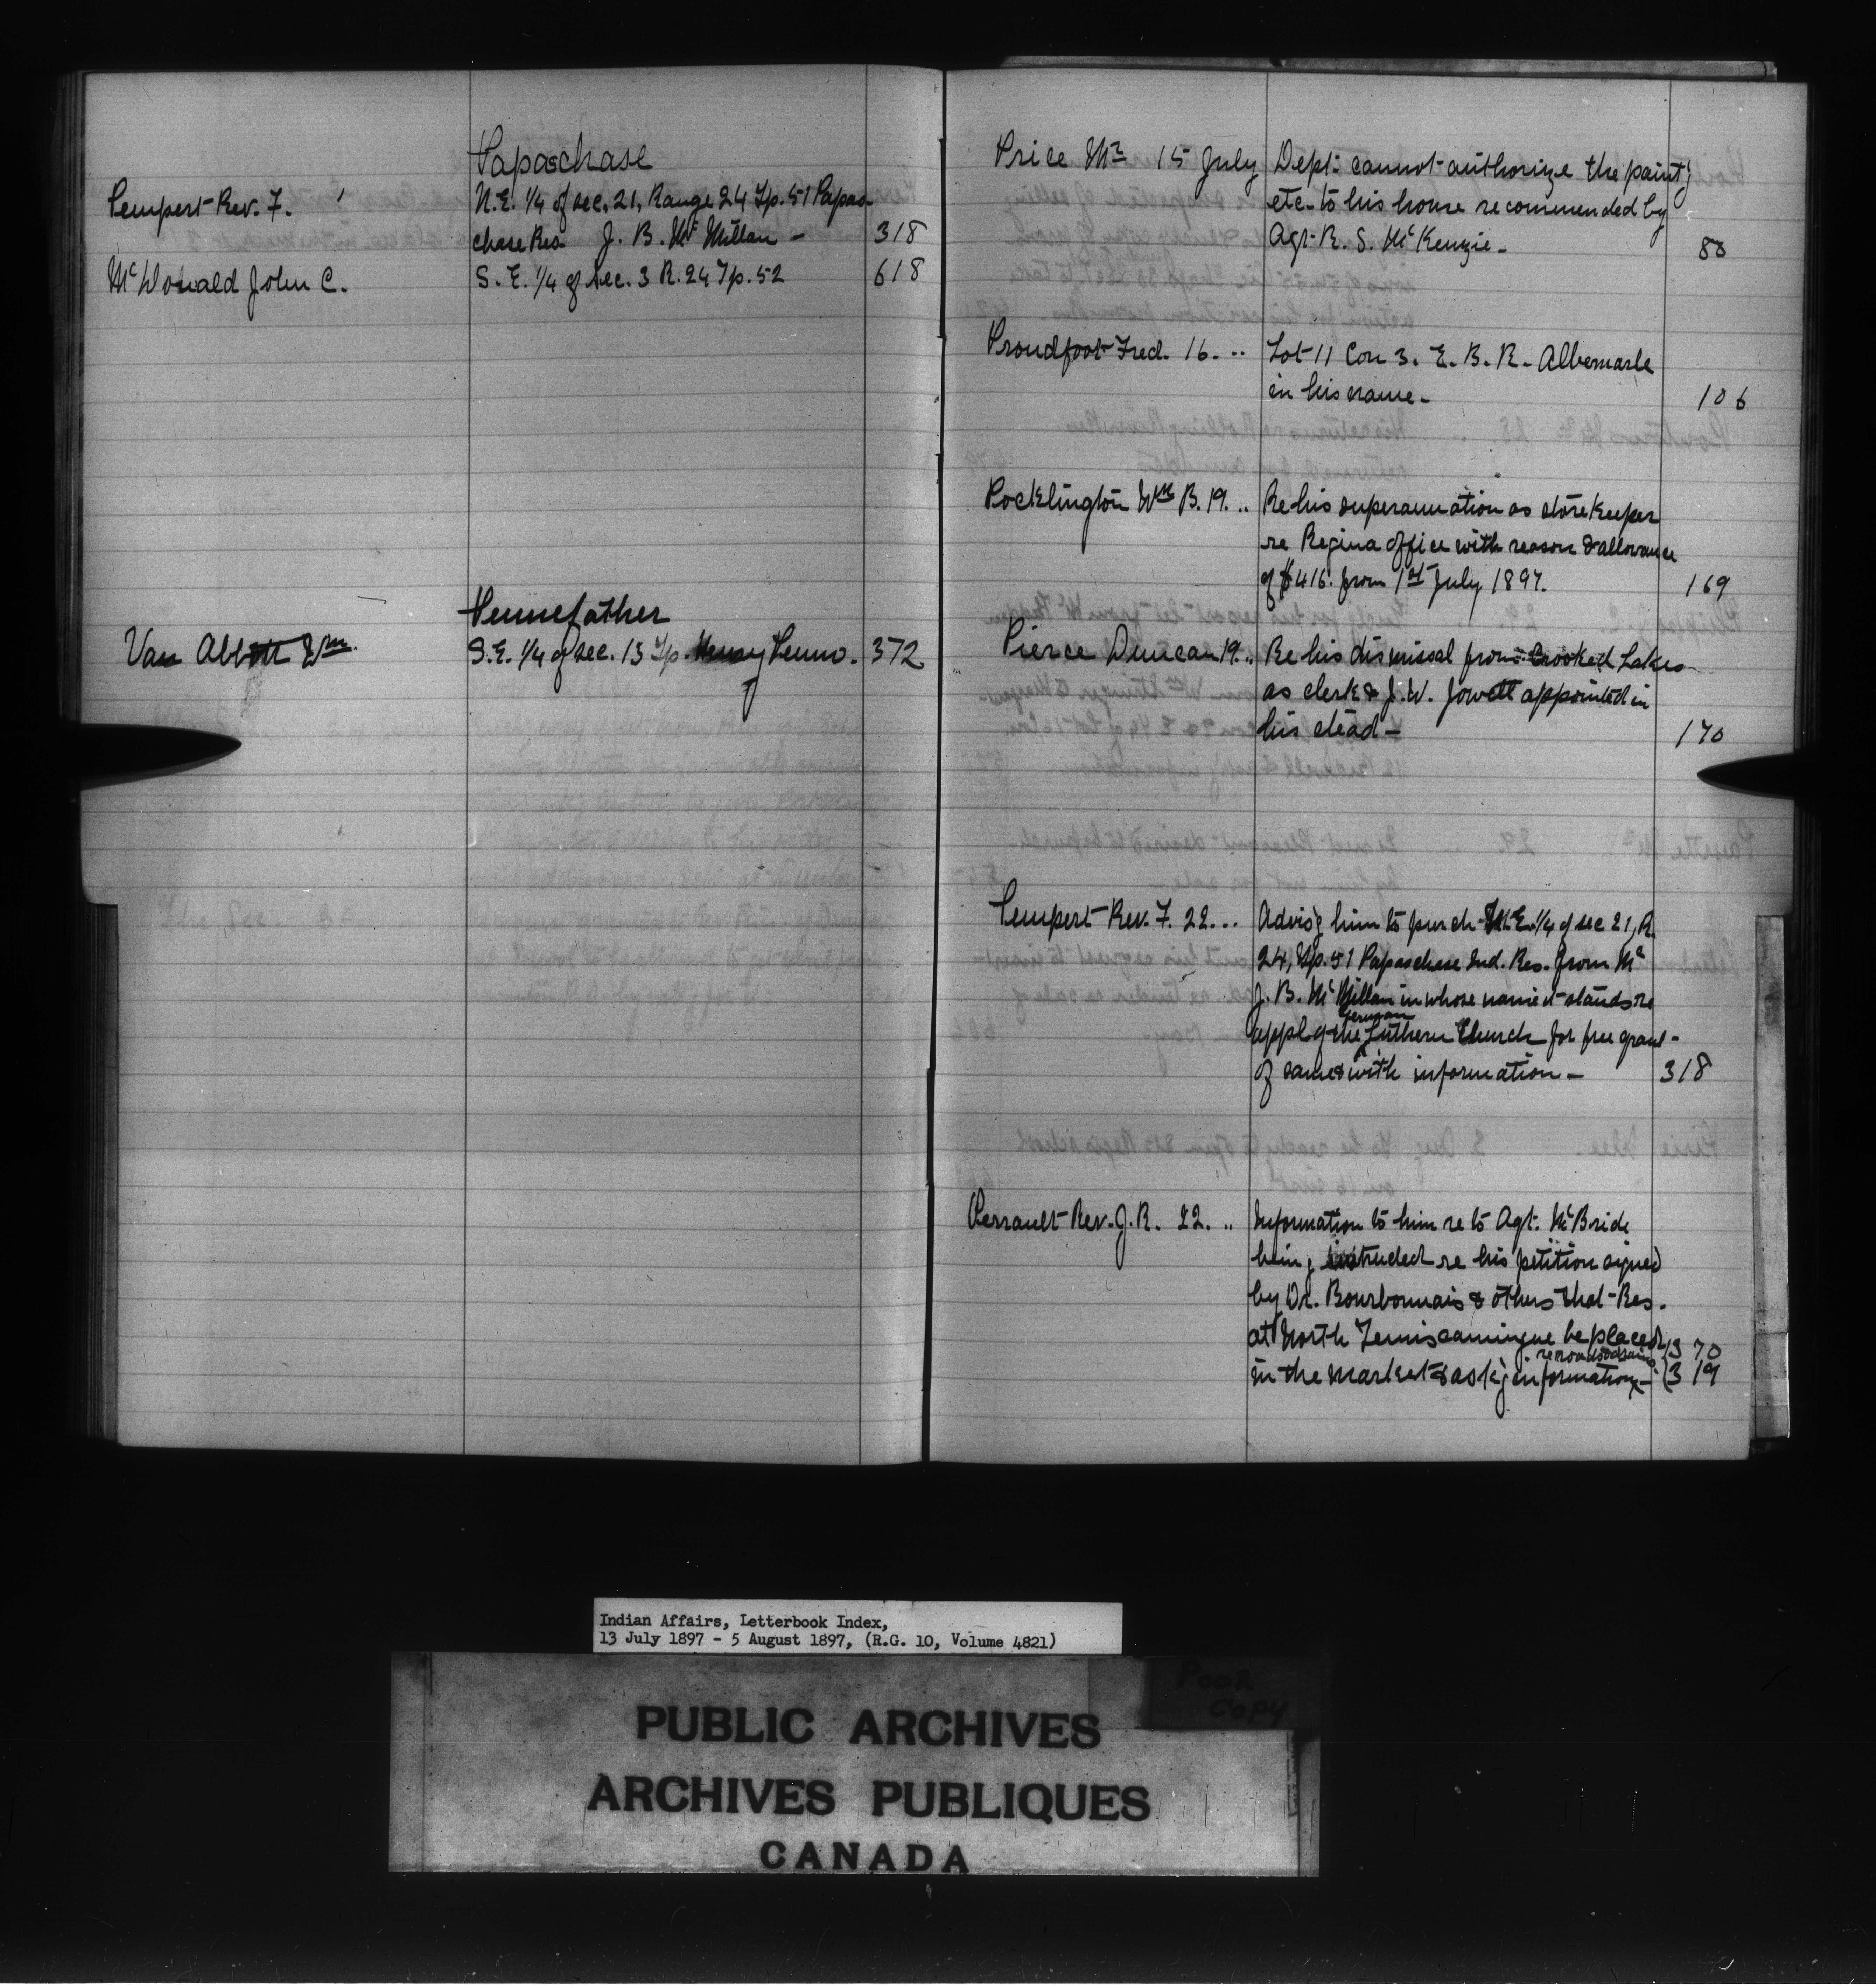 Papaschase
Pempert Rev. F. N.E. 1/4 of sec. 21, Range 24 Tp. 51 Papas-
chase Res. J. B. McMillan - 318
McDonald John C. S. E. 1/4 of sec. 3 R. 24 Tp. 52 618
Pennefather
Van Abbott Wm. S.E. 1/4 of sec. 13 Tp. Penno. 372
Price Mr 15 July Dept. cannot authorize the paint'g
etc. to his house recommended by
Agt. R. S. McKenzie - 88
Proudfoot Fred. 16. .. Lot 11 Con 3. E. B. R. Albemarle
in his name - 106
Pocklington Wm B. 19. .. Re his superannuation as storekeeper
re Regina office with reason & allowance
of $416. from 1st July 1897. 169
Pierce Duncan 19. .. Re his dismissal from Crooked Lakes
as clerk & J. W. Jowett appointed in
his stead - 170
Pempert Rev. F. 22. .. Advis'g him to purch N.E. 1/4 of sec 21, R.
24, Tp. 51 Papaschase Ind. Res. from Mr
J. B. McMillan in whose name it stands re
appl of the German Luthern Church for free grant
of same & with information - 318
Perrault Rev. J. R. 22. .. Information to him re to Agt. McBride
being instructed re his petition signed
by Dr. Bourbonnais & others that Res.
at North Temiscamingue be placed (370
in the market & ask'g information - (319
Indian Affairs, Letterbook Index,
13 July 1897 - 5 August 1897, (R.G. 10, Volume 4821)
POOR
COPY
PUBLIC ARCHIVES
ARCHIVES PUBLIQUES
CANADA